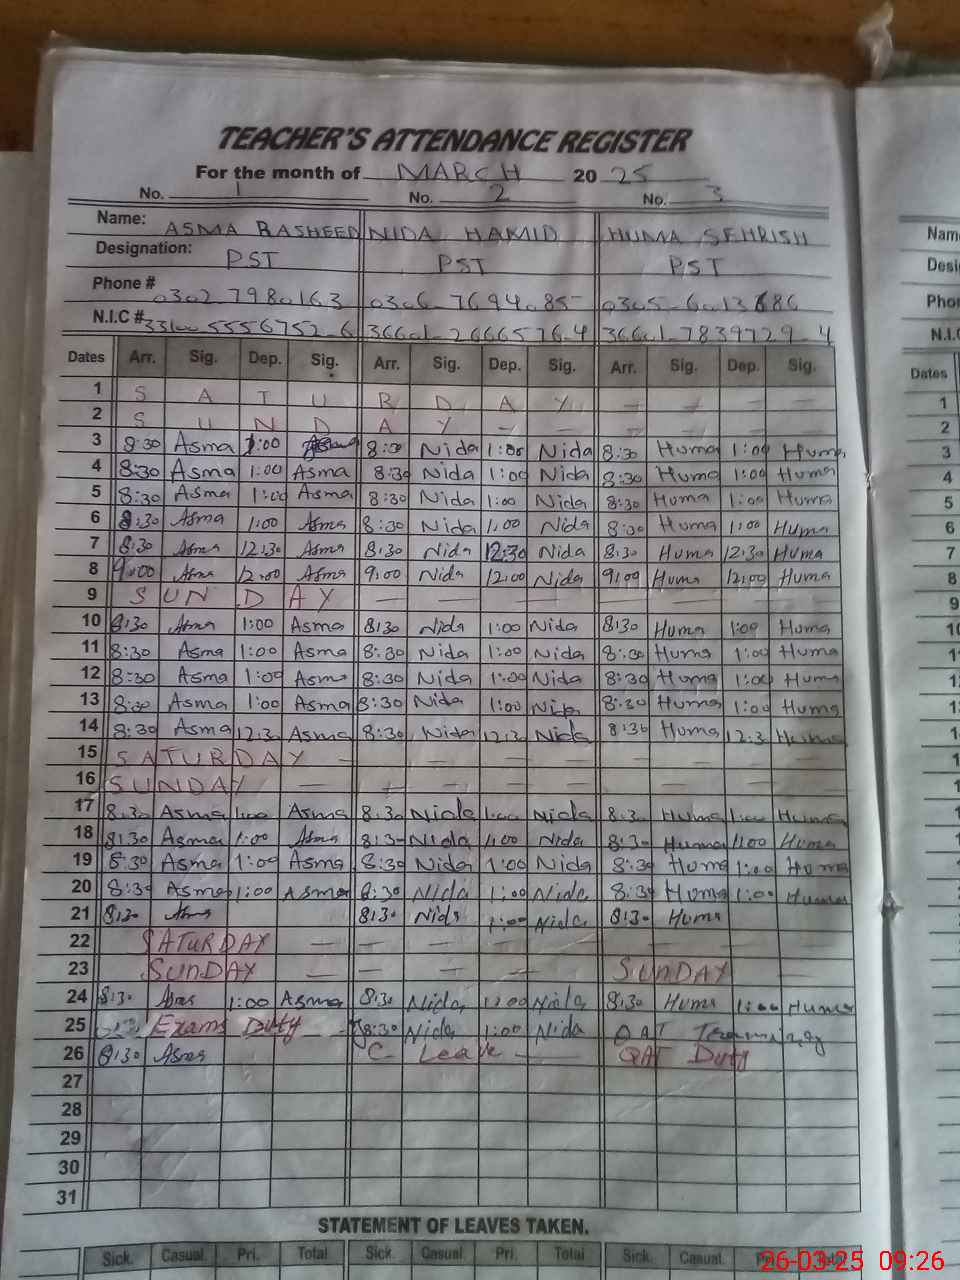 TEACHER'S ATTENDANCE REGISTER
For the month of MARCH 20 25
No. 1 No. 2 No. 3
Name: ASMA RASHEED NIDA HAMID HUMA SEHRISH
Designation: PST PST PST
Phone # 0302-7980163 0306-7694085 0305-6013686
N.I.C # 33100-5556752-6 36601-2666576-4 36601-7839729-4
Dates Arr. Sig. Dep. Sig. Arr. Sig. Dep. Sig. Arr. Sig. Dep. Sig.
1 S A T U R D A Y - - - -
2 S U N D A Y - - - - - -
3 8:30 Asma 1:00 Asma 8:30 Nida 1:00 Nida 8:30 Huma 1:00 Huma
4 8:30 Asma 1:00 Asma 8:30 Nida 1:00 Nida 8:30 Huma 1:00 Huma
5 8:30 Asma 1:00 Asma 8:30 Nida 1:00 Nida 8:30 Huma 1:00 Huma
6 8:30 Asma 1:00 Asma 8:30 Nida 1:00 Nida 8:30 Huma 1:00 Huma
7 8:30 Asma 12:30 Asma 8:30 Nida 12:30 Nida 8:30 Huma 12:30 Huma
8 9:00 Asma 12:00 Asma 9:00 Nida 12:00 Nida 9:00 Huma 12:00 Huma
9 S U N D A Y - - - - - - - -
10 8:30 Asma 1:00 Asma 8:30 Nida 1:00 Nida 8:30 Huma 1:00 Huma
11 8:30 Asma 1:00 Asma 8:30 Nida 1:00 Nida 8:30 Huma 1:00 Huma
12 8:30 Asma 1:00 Asma 8:30 Nida 1:00 Nida 8:30 Huma 1:00 Huma
13 8:30 Asma 1:00 Asma 8:30 Nida 1:00 Nida 8:30 Huma 1:00 Huma
14 8:30 Asma 12:3 Asma 8:30 Nida 12:3 Nida 8:30 Huma 12:3 Huma
15 SATURDAY - - - - - - - - -
16 SUNDAY - - - - - - - -
17 8:30 Asma 1:00 Asma 8:30 Nida 1:00 Nida 8:30 Huma 1:00 Huma
18 8:30 Asma 1:00 Asma 8:3- Nida 1:00 Nida 8:30 Huma 1:00 Huma
19 8:30 Asma 1:00 Asma 8:30 Nida 1:00 Nida 8:30 Huma 1:00 Huma
20 8:30 Asma 1:00 Asma 8:30 Nida 1:00 Nida 8:30 Huma 1:00 Huma
21 8:30 Asma 8:30 Nida 1:00 Nida 8:30 Huma
22 SATURDAY - - - - - - - -
23 SUNDAY - - - - - SUNDAY -
24 8:30 Asma 1:00 Asma 8:30 Nida 1:00 Nida 8:30 Huma 1:00 Huma
25 Exams Duty 8:30 Nida 1:00 Nida QAT
26 8:30 Asma C-Leave - - QAT Duty
27
28
29
30
31
STATEMENT OF LEAVES TAKEN.
Sick. Casual. Pri. Total Sick. Casual. Pri. Total Sick. Casual.
Dates
1
2
3
4
5
6
7
8
9
26-03-25 09:26